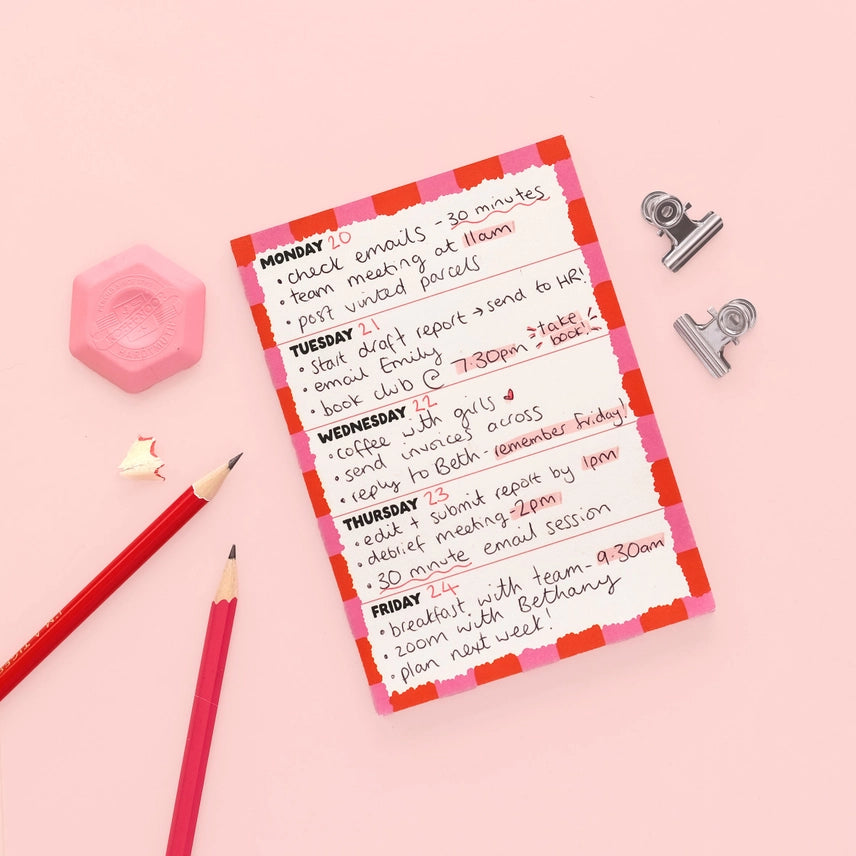 MONDAY 20
• check emails - 30 minutes
• team meeting at 11am
• post vinted parcels
TUESDAY 21
• start draft report → send to HR!
• email Emily
• book club @ 7.30pm take book!
WEDNESDAY 22
• coffee with girls ♥
• send invoices across
• reply to Beth - remember Friday!
THURSDAY 23
• edit + submit report by 1pm
• debrief meeting - 2pm
• 30 minute email session
FRIDAY 24
• breakfast with team - 9.30am
• zoom with Bethany
• plan next week!